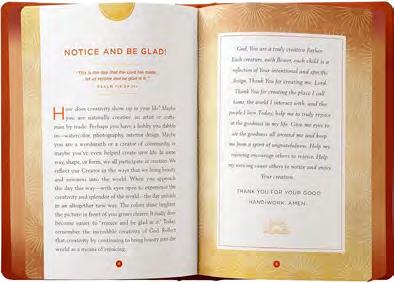 NOTICE AND BE GLAD!
"This is the day that the Lord has made;
let us rejoice and be glad in it."
PSALM 118:24
How does creativity show up in your life? Maybe
you are naturally creative, an artist or crafts-
man by trade. Perhaps you have a hobby you dabble
in—watercolor, photography, interior design. Maybe
you are a wordsmith or a creator of community or
maybe you've even helped create new life. In some
way, shape, or form, we all participate in creation. We
reflect our Creator in the ways that we bring beauty
and newness into the world. When you approach
the day this way—with eyes open to experience the
creativity and splendor of the world—the day unfolds
in an altogether new way. The colors shine brighter,
the picture in front of you grows clearer. It really does
become easier to "rejoice and be glad in it." Today,
remember the incredible creativity of God. Reflect
that creativity by continuing to bring beauty into the
world as a means of rejoicing.
God, You are a truly creative Father.
Each creature, each flower, each child is a
reflection of Your intentional and specific
design. Thank You for creating me, Lord.
Thank You for creating the place I call
home, the world I interact with, and the
people I love. Today, help me to truly rejoice
at the goodness in my life. Give me eyes to
see the goodness all around me and keep
me from a spirit of ungratefulness. Help my
rejoicing encourage others to rejoice. Help
my noticing cause others to notice and enjoy
Your creation.
THANK YOU FOR YOUR GOOD
HANDIWORK. AMEN.